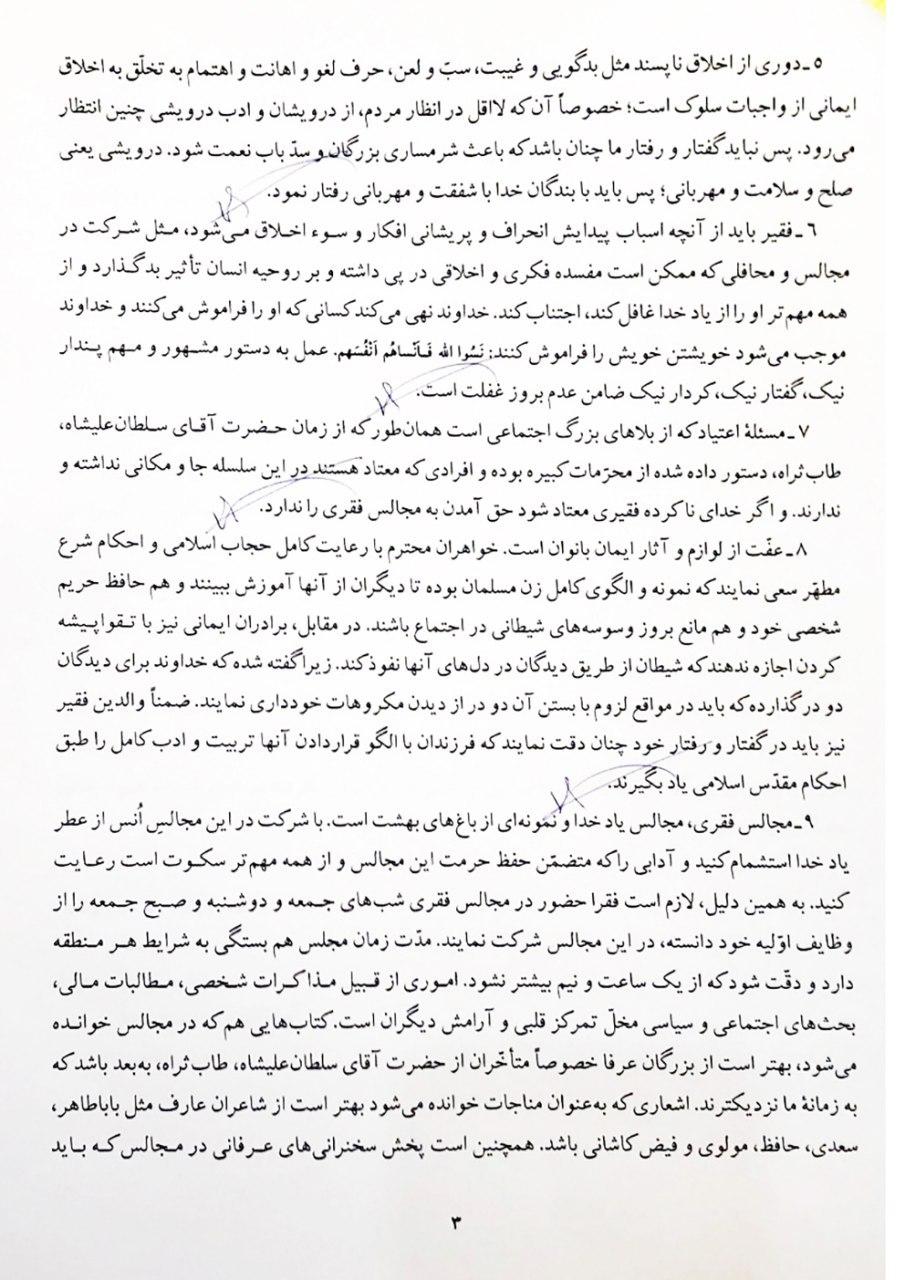 ۵ـ دوری از اخلاق ناپسند مثل بدگویی و غیبت، سبّ و لعن، حرف لغو و اهانت و اهتمام به تخلّق به اخلاق
ایمانی از واجبات سلوک است؛ خصوصاً آن‌که لااقل در انظار مردم، از درویشان و ادب درویشی چنین انتظار
می‌رود. پس نباید گفتار و رفتار ما چنان باشد که باعث شرمساری بزرگان و سدّ باب نعمت شود. درویشی یعنی
صلح و سلامت و مهربانی؛ پس باید با بندگان خدا با شفقت و مهربانی رفتار نمود.
۶ـ فقیر باید از آنچه اسباب پیدایش انحراف و پریشانی افکار و سوء اخلاق می‌شود، مثل شرکت در
مجالس و محافلی که ممکن است مفسده فکری و اخلاقی در پی داشته و بر روحیه انسان تأثیر بد گذارد و از
همه مهم‌تر او را از یاد خدا غافل کند، اجتناب کند. خداوند نهی می‌کند کسانی که او را فراموش می‌کنند و خداوند
موجب می‌شود خویشتن خویش را فراموش کنند: نَسُوا الله فَأنْساهُم اَنْفُسَهم. عمل به دستور مشهور و مهم پندار
نیک، گفتار نیک، کردار نیک ضامن عدم بروز غفلت است.
۷ـ مسئلهٔ اعتیاد که از بلاهای بزرگ اجتماعی است همان‌طور که از زمان حضرت آقای سلطان‌علیشاه،
طاب ثراه، دستور داده شده از محرّمات کبیره بوده و افرادی که معتاد هستند در این سلسله جا و مکانی نداشته و
ندارند. و اگر خدای ناکرده فقیری معتاد شود حق آمدن به مجالس فقری را ندارد.
۸ـ عفّت از لوازم و آثار ایمان بانوان است. خواهران محترم با رعایت کامل حجاب اسلامی و احکام شرع
مطهّر سعی نمایند که نمونه و الگوی کامل زن مسلمان بوده تا دیگران از آنها آموزش ببینند و هم حافظ حریم
شخصی خود و هم مانع بروز وسوسه‌های شیطانی در اجتماع باشند. در مقابل، برادران ایمانی نیز با تقوا پیشه
کردن اجازه ندهند که شیطان از طریق دیدگان در دل‌های آنها نفوذ کند. زیرا گفته شده که خداوند برای دیدگان
دو در گذارده که باید در مواقع لزوم با بستن آن دو در از دیدن مکروهات خودداری نمایند. ضمناً والدین فقیر
نیز باید در گفتار و رفتار خود چنان دقت نمایند که فرزندان با الگو قراردادن آنها تربیت و ادب کامل را طبق
احکام مقدّس اسلامی یاد بگیرند.
۹ـ مجالس فقری، مجالس یاد خدا و نمونه‌ای از باغ‌های بهشت است. با شرکت در این مجالسِ اُنس از عطر
یاد خدا استشمام کنید و آدابی را که متضمّن حفظ حرمت این مجالس و از همه مهم‌تر سکوت است رعایت
کنید. به همین دلیل، لازم است فقرا حضور در مجالس فقری شب‌های جمعه و دوشنبه و صبح جمعه را از
وظایف اوّلیه خود دانسته، در این مجالس شرکت نمایند. مدّت زمان مجلس هم بستگی به شرایط هر منطقه
دارد و دقّت شود که از یک ساعت و نیم بیشتر نشود. اموری از قبیل مذاکرات شخصی، مطالبات مالی،
بحث‌های اجتماعی و سیاسی مخلّ تمرکز قلبی و آرامش دیگران است. کتاب‌هایی هم که در مجالس خوانده
می‌شود، بهتر است از بزرگان عرفا خصوصاً متأخّران از حضرت آقای سلطان‌علیشاه، طاب ثراه، به‌بعد باشد که
به زمانهٔ ما نزدیکترند. اشعاری که به‌عنوان مناجات خوانده می‌شود بهتر است از شاعران عارف مثل باباطاهر،
سعدی، حافظ، مولوی و فیض کاشانی باشد. همچنین است پخش سخنرانی‌های عرفانی در مجالس که باید
۳